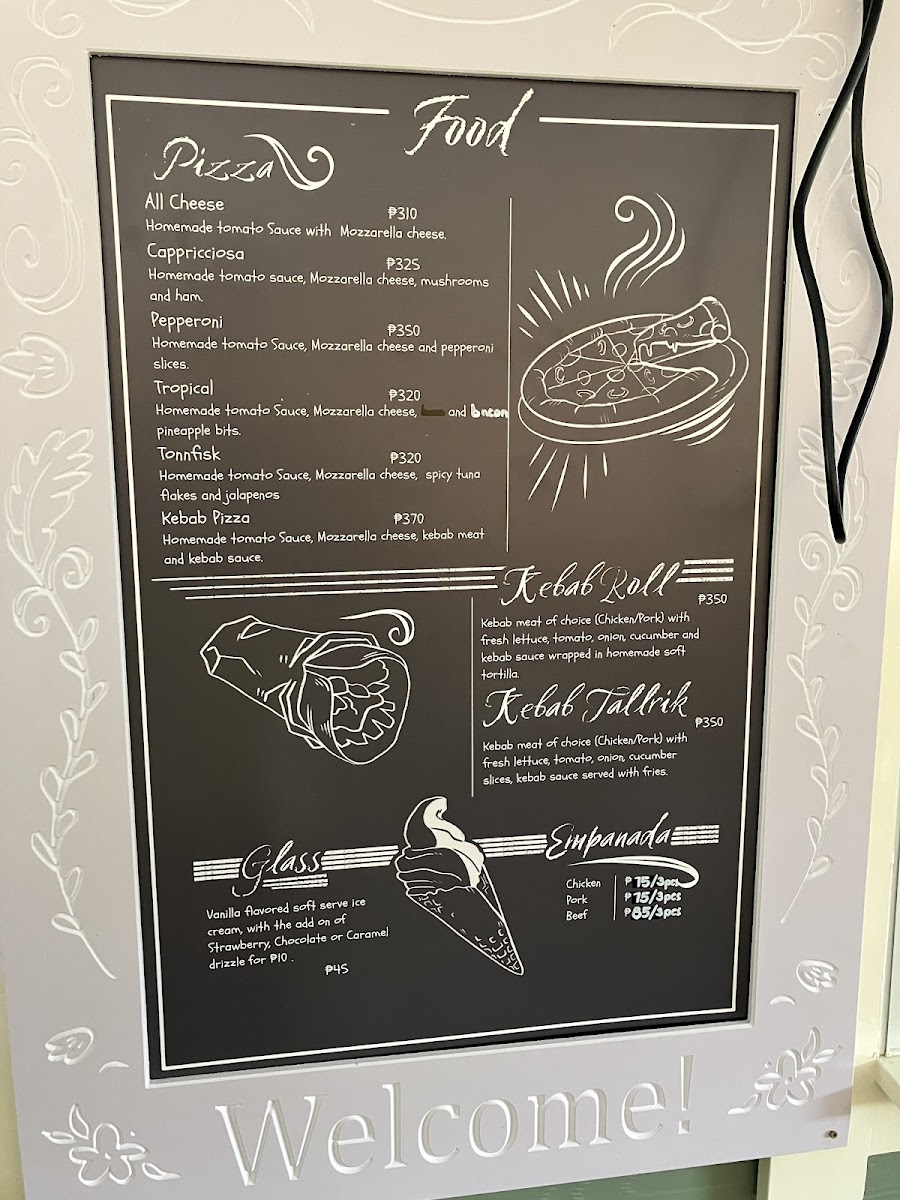 Food
Pizza
All Cheese
₱310
Homemade tomato Sauce with Mozzarella cheese.
Cappricciosa
₱325
Homemade tomato sauce, Mozzarella cheese, mushrooms
and ham.
Pepperoni
₱350
Homemade tomato Sauce, Mozzarella cheese and pepperoni
slices.
Tropical
₱320
Homemade tomato Sauce, Mozzarella cheese, and bacon
pineapple bits.
Tonnfisk
₱320
Homemade tomato Sauce, Mozzarella cheese, spicy tuna
flakes and jalapenos
Kebab Pizza ₱370
Homemade tomato Sauce, Mozzarella cheese, kebab meat
and kebab sauce.
Kebab Roll
₱350
Kebab meat of choice (Chicken/Pork) with
fresh lettuce, tomato, onion, cucumber and
kebab sauce wrapped in homemade soft
tortilla.
Kebab Tallrik
₱350
Kebab meat of choice (Chicken/Pork) with
fresh lettuce, tomato, onion, cucumber
slices, kebab sauce served with fries.
Glass
Vanilla flavored soft serve ice
cream, with the add on of
Strawberry, Chocolate or Caramel
drizzle for ₱10 .
₱45
Empanada
Chicken ₱75/3pcs
Pork ₱75/3pcs
Beef ₱85/3pcs
Welcome!